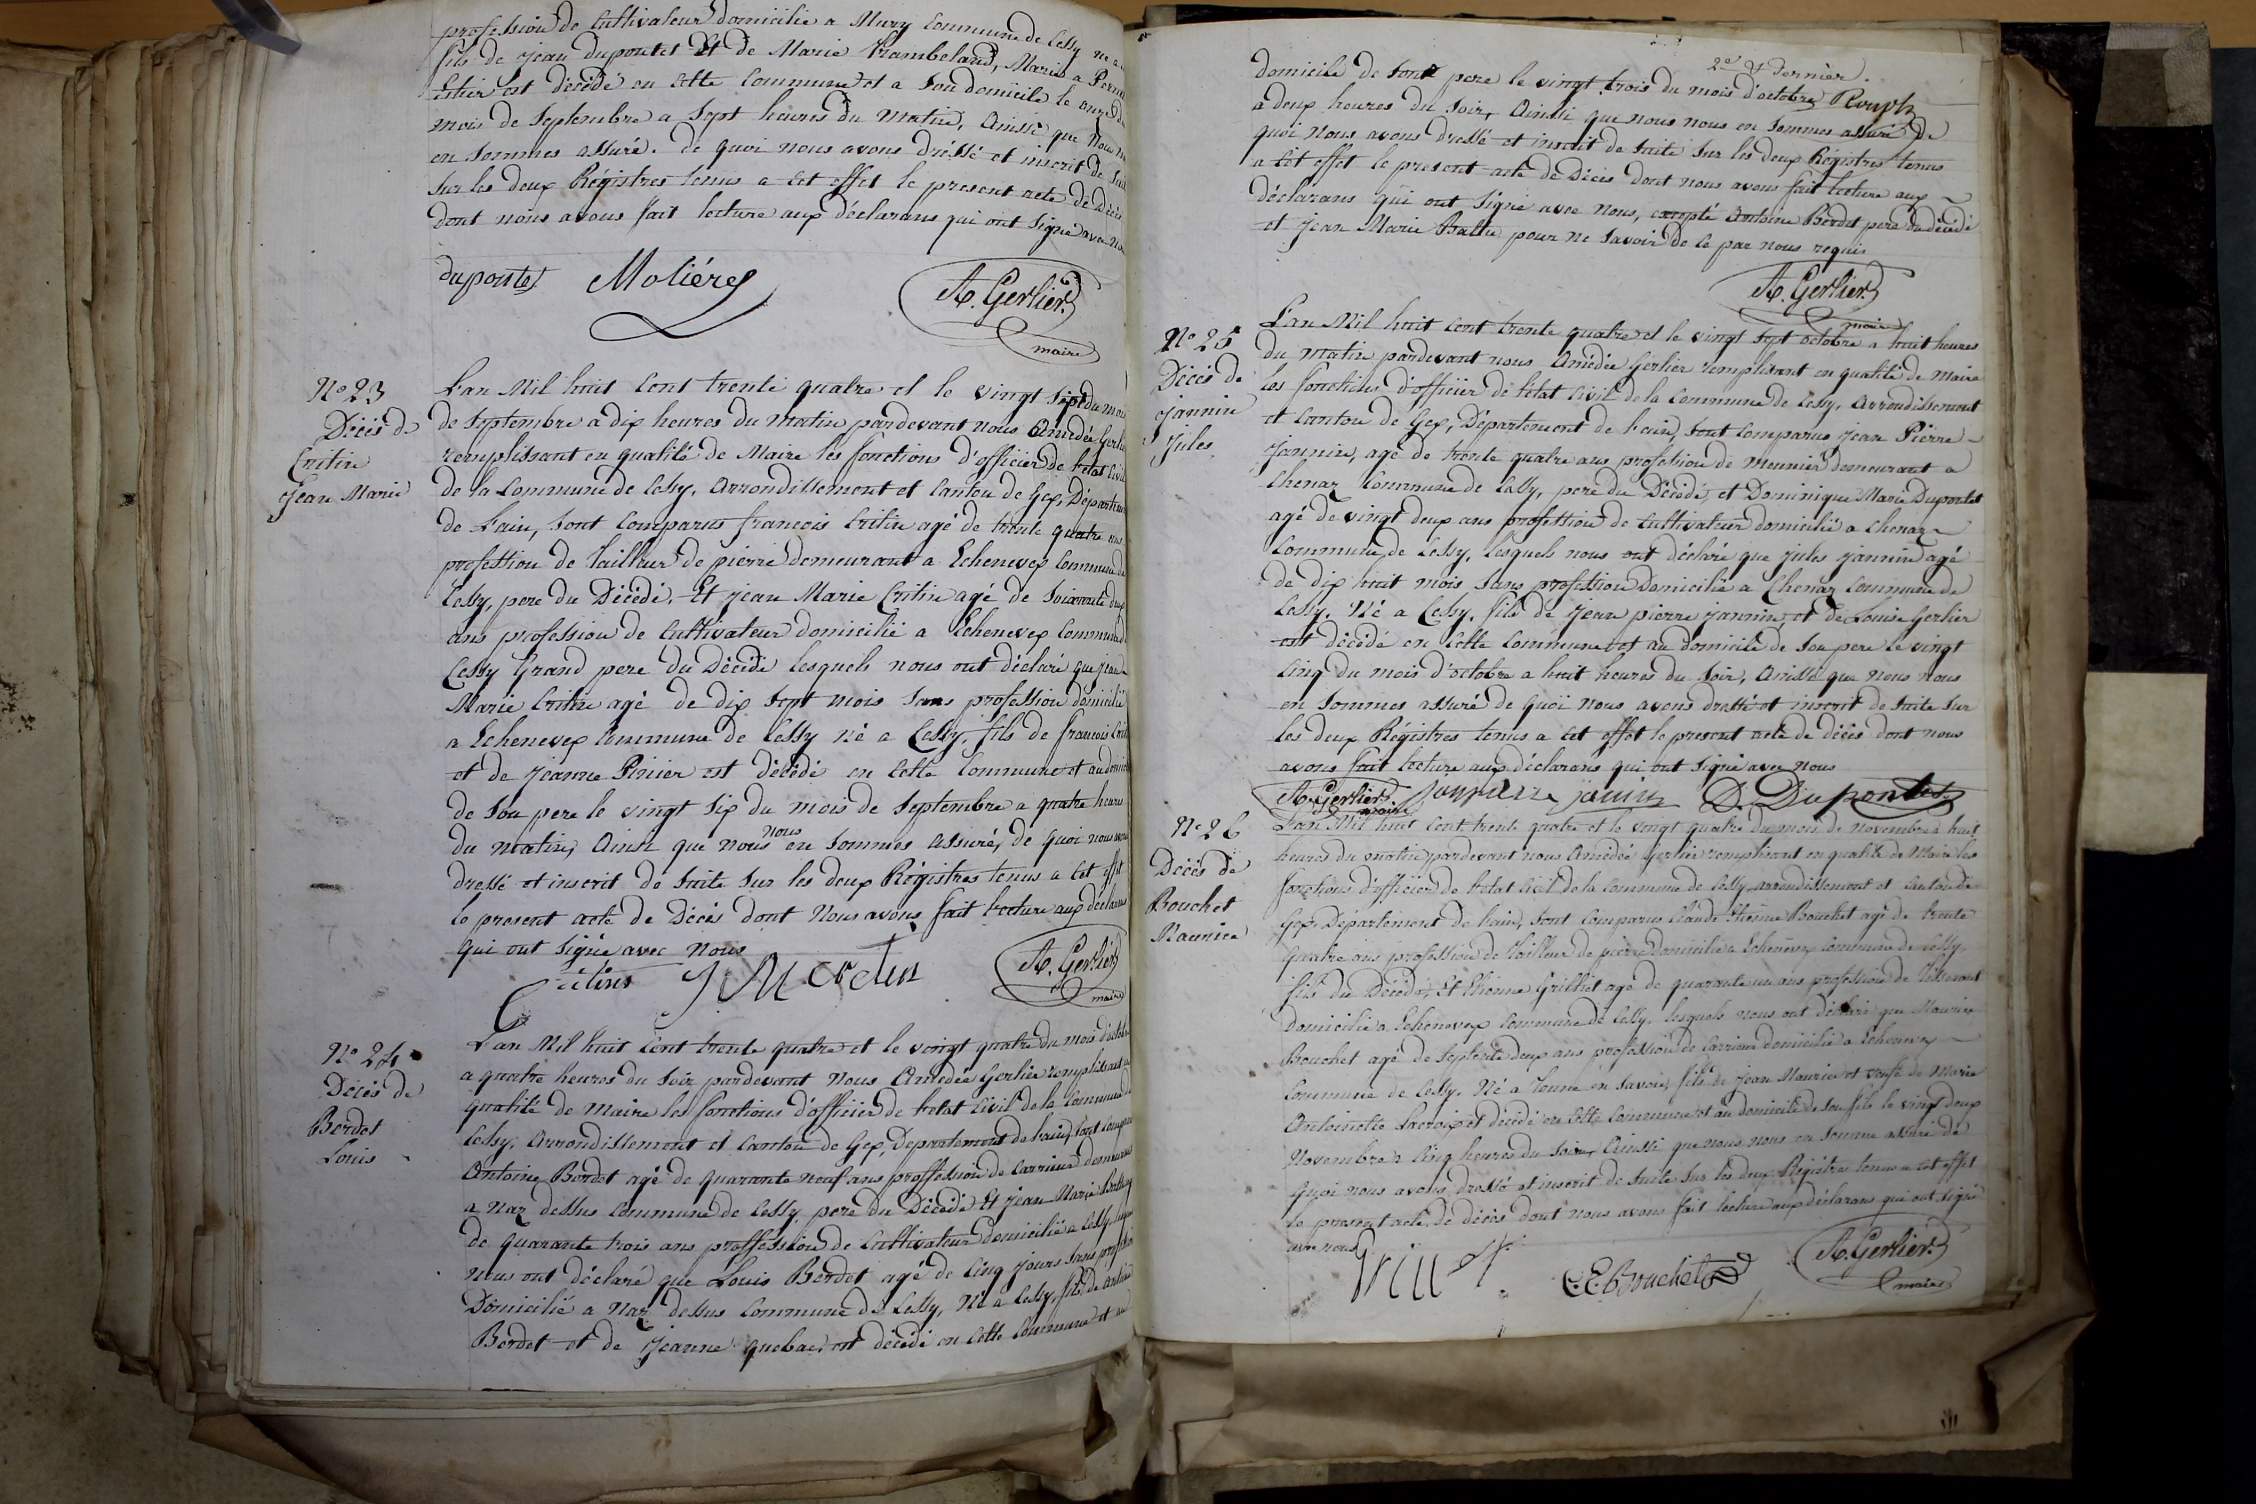 profession de Cultivateur domicilié a Mury Commune de Cessy né a
fils de Jean dupontet Et de Marie trambeland, Marié a
est décédé en cette Commune et a Son domicile le onze du
mois de Septembre a Sept heures du matin, Ainssi que Nous
en Sommes assuré. de quoi nous avons dréssé et inscrit de Suite
Sur les deux Régistres tenus a Cet effet le present acte de Décès
dont nous avous fait lecture aux déclarans qui ont Signé avec Nous
dupontet Moliéres A. Gerlier
maire
No 23
Décès de
Critin
Jean Marie
L'an Mil huit Cent trente quatre et le vingt Sept du mois
de Septembre a dix heures du matin pardevant nous Amedée Gerlier
remplissant en qualité de Maire les fonctions d'officier de l'etat Civil
de la Commune de Cessy, Arrondissement et Canton de Gex, Département
de L'ain, Sont Comparus francois Critin agé de trente quatre ans
profession de Tailleur de pierre demeurant a Echenevex Commune de
Cessy, pere du Décédé. Et Jean Marie Critin agé de Soixante deux
ans profession de Cultivateur domicilié a Echenevex Commune de
Cessy Grand pere du Décédé lesquels nous ont déclaré que jean
Marie Critin agé de dix Sept mois Sans profession domicilié
a Echenevex Commune de Cessy né a Cessy, fils de francois Critin
et de Jeanne Pinier est décédé en Cette Commune et au domicile
de Son pere le vingt Six du mois de Septembre a quatre heures
du matin, Ainsi que nous nous en Sommes assuré, de quoi nous avons
dressé et inscrit de Suite Sur les deux Régistres tenus a Cet effet
le present acte de Décès dont Nous avons fait lecture aux déclarans
qui ont Signé avec Nous
Critin J M Cretin A. Gerlier
maire
No 24
Décès de
Berdet
Louis
L'an Mil huit Cent trente quatre et le vingt quatre du mois d'octobre
a quatre heures du Soir pardevant Nous Amedée Gerlier remplissant en
qualité de Maire les fonctions d'officier de l'etat Civil de la Commune de
Cessy, Arrondissement et Canton de Gex, Département de l'ain, Sont Comparus
Antoine Berdet agé de quarante neuf ans proffession de Carrieur demeurant
a Naz dessus Commune de Cessy, pere du Décédé Et Jean Marie
de quarante trois ans proffession de Cultivateur domicilié a Cessy, lesquels
nous ont déclaré que Louis Berdet agé de Cinq jours Sans profession
Domicilié a Naz dessus Commune de Cessy, Né a Cessy, fils de Antoine
Berdet et de Jeanne quebac, est décédé en Cette Commune et au
2e et dernier.
domicile de Son pere le vingt trois du mois d'octobre
a deux heures du Soir, Ainssi que nous nous en Sommes assuré de
quoi nous avons dressé et inscrit de Suite Sur les deux Régistres tenus
a Cet effet le present acte de Décès dont nous avons fait lecture aux
déclarans qui ont Signé avec Nous, excepté Antoine Berdet pere du décédé
et Jean Marie pour ne Savoir de ce par nous requis
A. Gerlier
maire
No 25
Décès de
Jannin
Jules
L'an Mil huit Cent trente quatre et le vingt Sept octobre a huit heures
du matin pardevant nous Amédée Gerlier remplissant en qualité de Maire
les fonctions d'officier de l'etat Civil de la Commune de Cessy, Arrondissement
et Canton de Gex, Département de l'ain, Sont Comparus Jean Pierre
Jannin, agé de trente quatre ans profession de Meunier demeurant a
Chenaz Commune de Cessy, pere du Décédé, et Dominique Marie Dupontet
agé de vingt deux ans profession de Cultivateur domicilié a Chenaz
Commune de Cessy, lesquels nous ont déclaré que Jules Jannin agé
de dix huit mois Sans profession Domicilié a Chenaz Commune de
Cessy, Né a Cessy, fils de Jean pierre Jannin et de Louise Gerlier
est décédé en Cette Commune et au domicile de Son pere le vingt
Cinq du mois d'octobre a huit heures du Soir, Ainssi que nous nous
en Sommes assuré de quoi nous avons dressé et inscrit de Suite Sur
les deux Régistres tenus a Cet effet le present acte de décès dont nous
avons fait lecture aux déclarans qui ont Signé avec Nous
A. Gerlier janin D. Dupontet
maire
No 26
Décès de
Bouchet
Maurice
L'an Mil huit Cent trente quatre et le vingt quatre du mois de Novembre a huit
heures du matin pardevant nous Amédée Gerlier remplissant en qualité de Maire les
fonctions d'officier de l'etat Civil de la Commune de Cessy arrondissement et Canton de
Gex, Département de l'ain, Sont Comparus Claude Etienne Bouchet agé de trente
quatre ans profession de Tailleur de pierre domicilié a Echenevex Commune de Cessy,
fils du Décédé, Et Etienne Grilliet agé de quarante un ans profession de Tisserant
domicilié a Echenevex Commune de Cessy, lesquels nous ont déclaré que Maurice
Bouchet agé de Septente deux ans profession de Carrieur domicilié a Echenevex
Commune de Cessy, Né a en Savoie, fils de Jean Maurice et veuf de Marie
Antoinette Lacroix est décédé en Cette Commune et au domicile de Son fils le vingt deux
Novembre a Cinq heures du Soir, Ainssi que nous nous en Somme assuré de
quoi nous avons dressé et inscrit de Suite Sur les deux Régistres tenus a Cet effet
le present acte de décès dont nous avons fait lecture aux déclarans qui ont Signé
avec nous
C. E. Bouchet A. Gerlier
maire